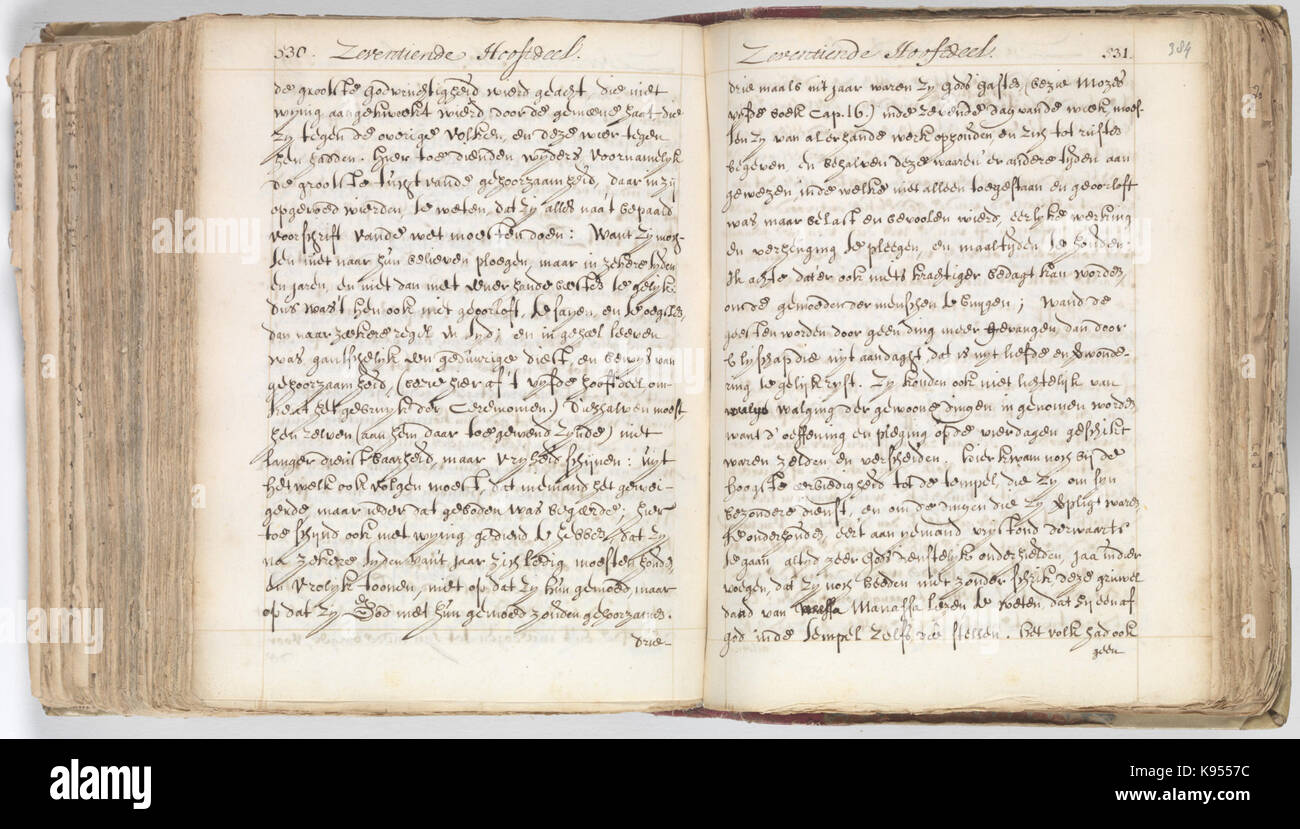 530. Zeventiende Hoofdeel.
de grootste Godvruchtigheid wierd geacht, die niet
wijnig aangekweekt wierd door de gemeene haat die
zy tegen de overige volken, en deze weer tegen
hen hadden. Hier toe dienden wijders voornamelyk
de grootste tugt vande gehoorzaamheid, daar in zij
opgevoed wierden, te weten, dat zy alles na't bepaald
voorschrift vande wet moesten doen: Want zy mogten
niet naar hun believen ploegen, maar in zekere tyden
en jaren, en niet dan met eenerhande beesten te gelyk:
dus was't hen ook niet geoorloft, te sajen, en te oegsten
dan naar zeekere regel en tyd; en in geheel leeven
was gantschelyk een geduurige dienst, en bewys van
gehoorzaamheid, (bezie hier af 't vyfde hooftdeel om-
trent het gebruyk der Ceremonien.) Dieshalven moest
hen zelven (aan hem daar toe gewend zynde) niet
langer dienstbaarheid, maar vryheid schijnen: uyt
het welk ook volgen moest, dat niemand het gewei-
gerde maar ieder dat geboden was begeerde; hier
toe schijnd ook niet wynig gediend te hebben, dat zy
na zekere tyden van't jaar zich ledig moesten houden
en vrolyk toonen, niet op dat zy hun gemoed, maar
op dat zy God met hun gemoed zouden gehoorzamen.
drie-
Zeventiende Hoofdeel. 531.
384
drie maals in't jaar waren zy Gods gasten, (bezie Mozes
vyfde boek Cap. 16.) inde zevende dag vande week moes-
ten zy van alerhande werk ophouden en zich tot rusten
begeven, en behalven deze waaren'er andere tyden aan
gewezen, inde welke niet alleen toegestaan en geoorloft
was maar belast en bevoolen wierd, eerlyke werking
en verheuging te pleegen, en maaltyden te houden.
Ik achte dat er ook niets krachtiger bedagt kan worden,
om de gemoeden der menschen te buygen; Want de
geesten worden door geen ding meer gevangen, dan door
blyschap die uyt aandagt, dat is uyt liefde en verwonde-
ring te gelijk ryst. Zy konden ook niet lichtelijk van
walging der gewoone dingen ingenomen worden,
want d'oeffening en pleging op de vierdagen geschikt
waren zelden en verscheiden. hier kwam noch bij de
hoogste eerbiedigheid tot de tempel, die zy om syn
bezondere dienst, en om de dingen die zy verpligt waren
te onderhouden, eert aan yemand vrystond derwaarts
te gaan, altyd zeer Godsdienstelyk onderhielden, jaa indier
voegen, dat zy noch heeden niet zonder schrik deze gruwel
daad van Manassa lezen te weten, dat hy een af
god inde tempel zelfs dee stellen. het volk had ook
geen
alamy
alamy
Image ID: K9557C
www.alamy.com